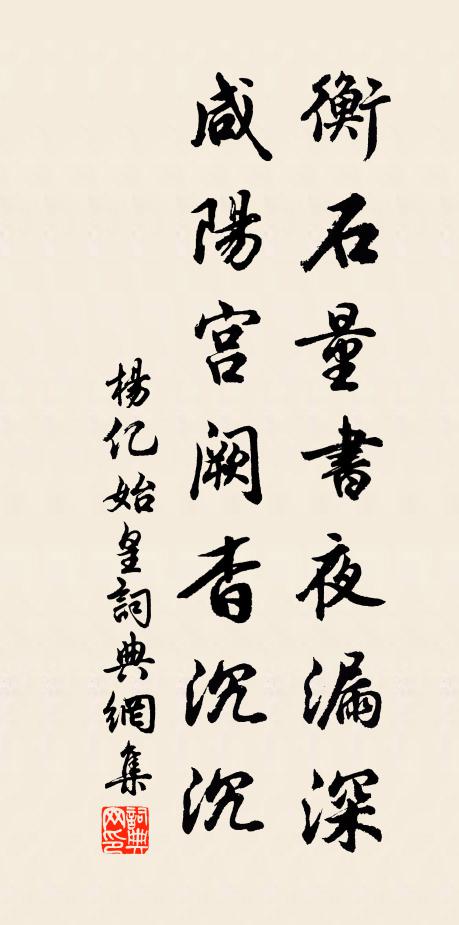 衡石量書夜漏深
咸陽宫闕杳沉沉
楊亿始皇詞典網集
詞典网印